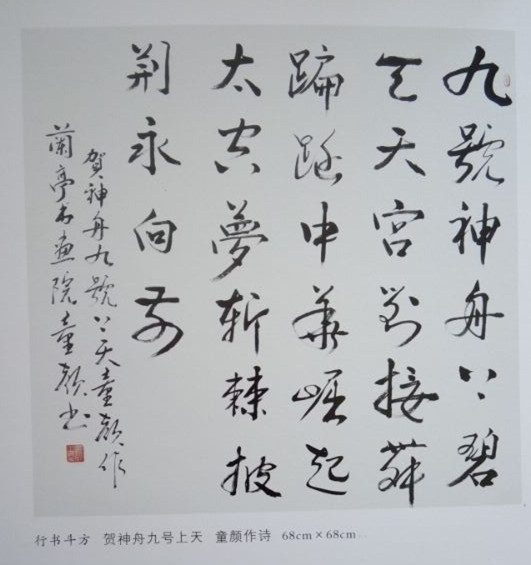 九號神舟上碧
天天宮對接舞
蹁躚中華崛起
太空夢斬棘披
荆永向前
賀神舟九號上天童顏作
蘭亭書畫院童顏書
行书斗方 贺神舟九号上天 童颜作诗 68cm×68cm